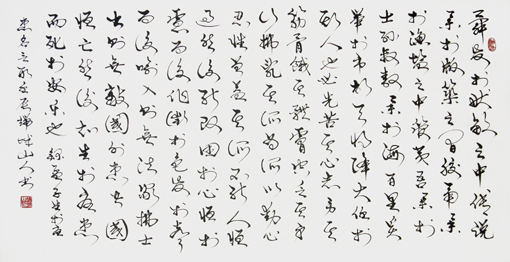 舜發於畎畝之中傅說
舉於版築之間膠鬲舉
於漁鹽之中管夷吾舉於
士孫叔敖舉於海百里奚
舉於市故天將降大任於
斯人也必先苦其心志勞其
筋骨餓其體膚空乏其身
行拂亂其所為所以動心
忍性曾益其所不能人恒
過然後能改困於心恒於
慮而後作徵於色發於聲
而後喻入則無法家拂士
出則無敵國外患者國
恒亡然後知生於憂患
而死於安樂也 錄孟子生於憂
患
山人書